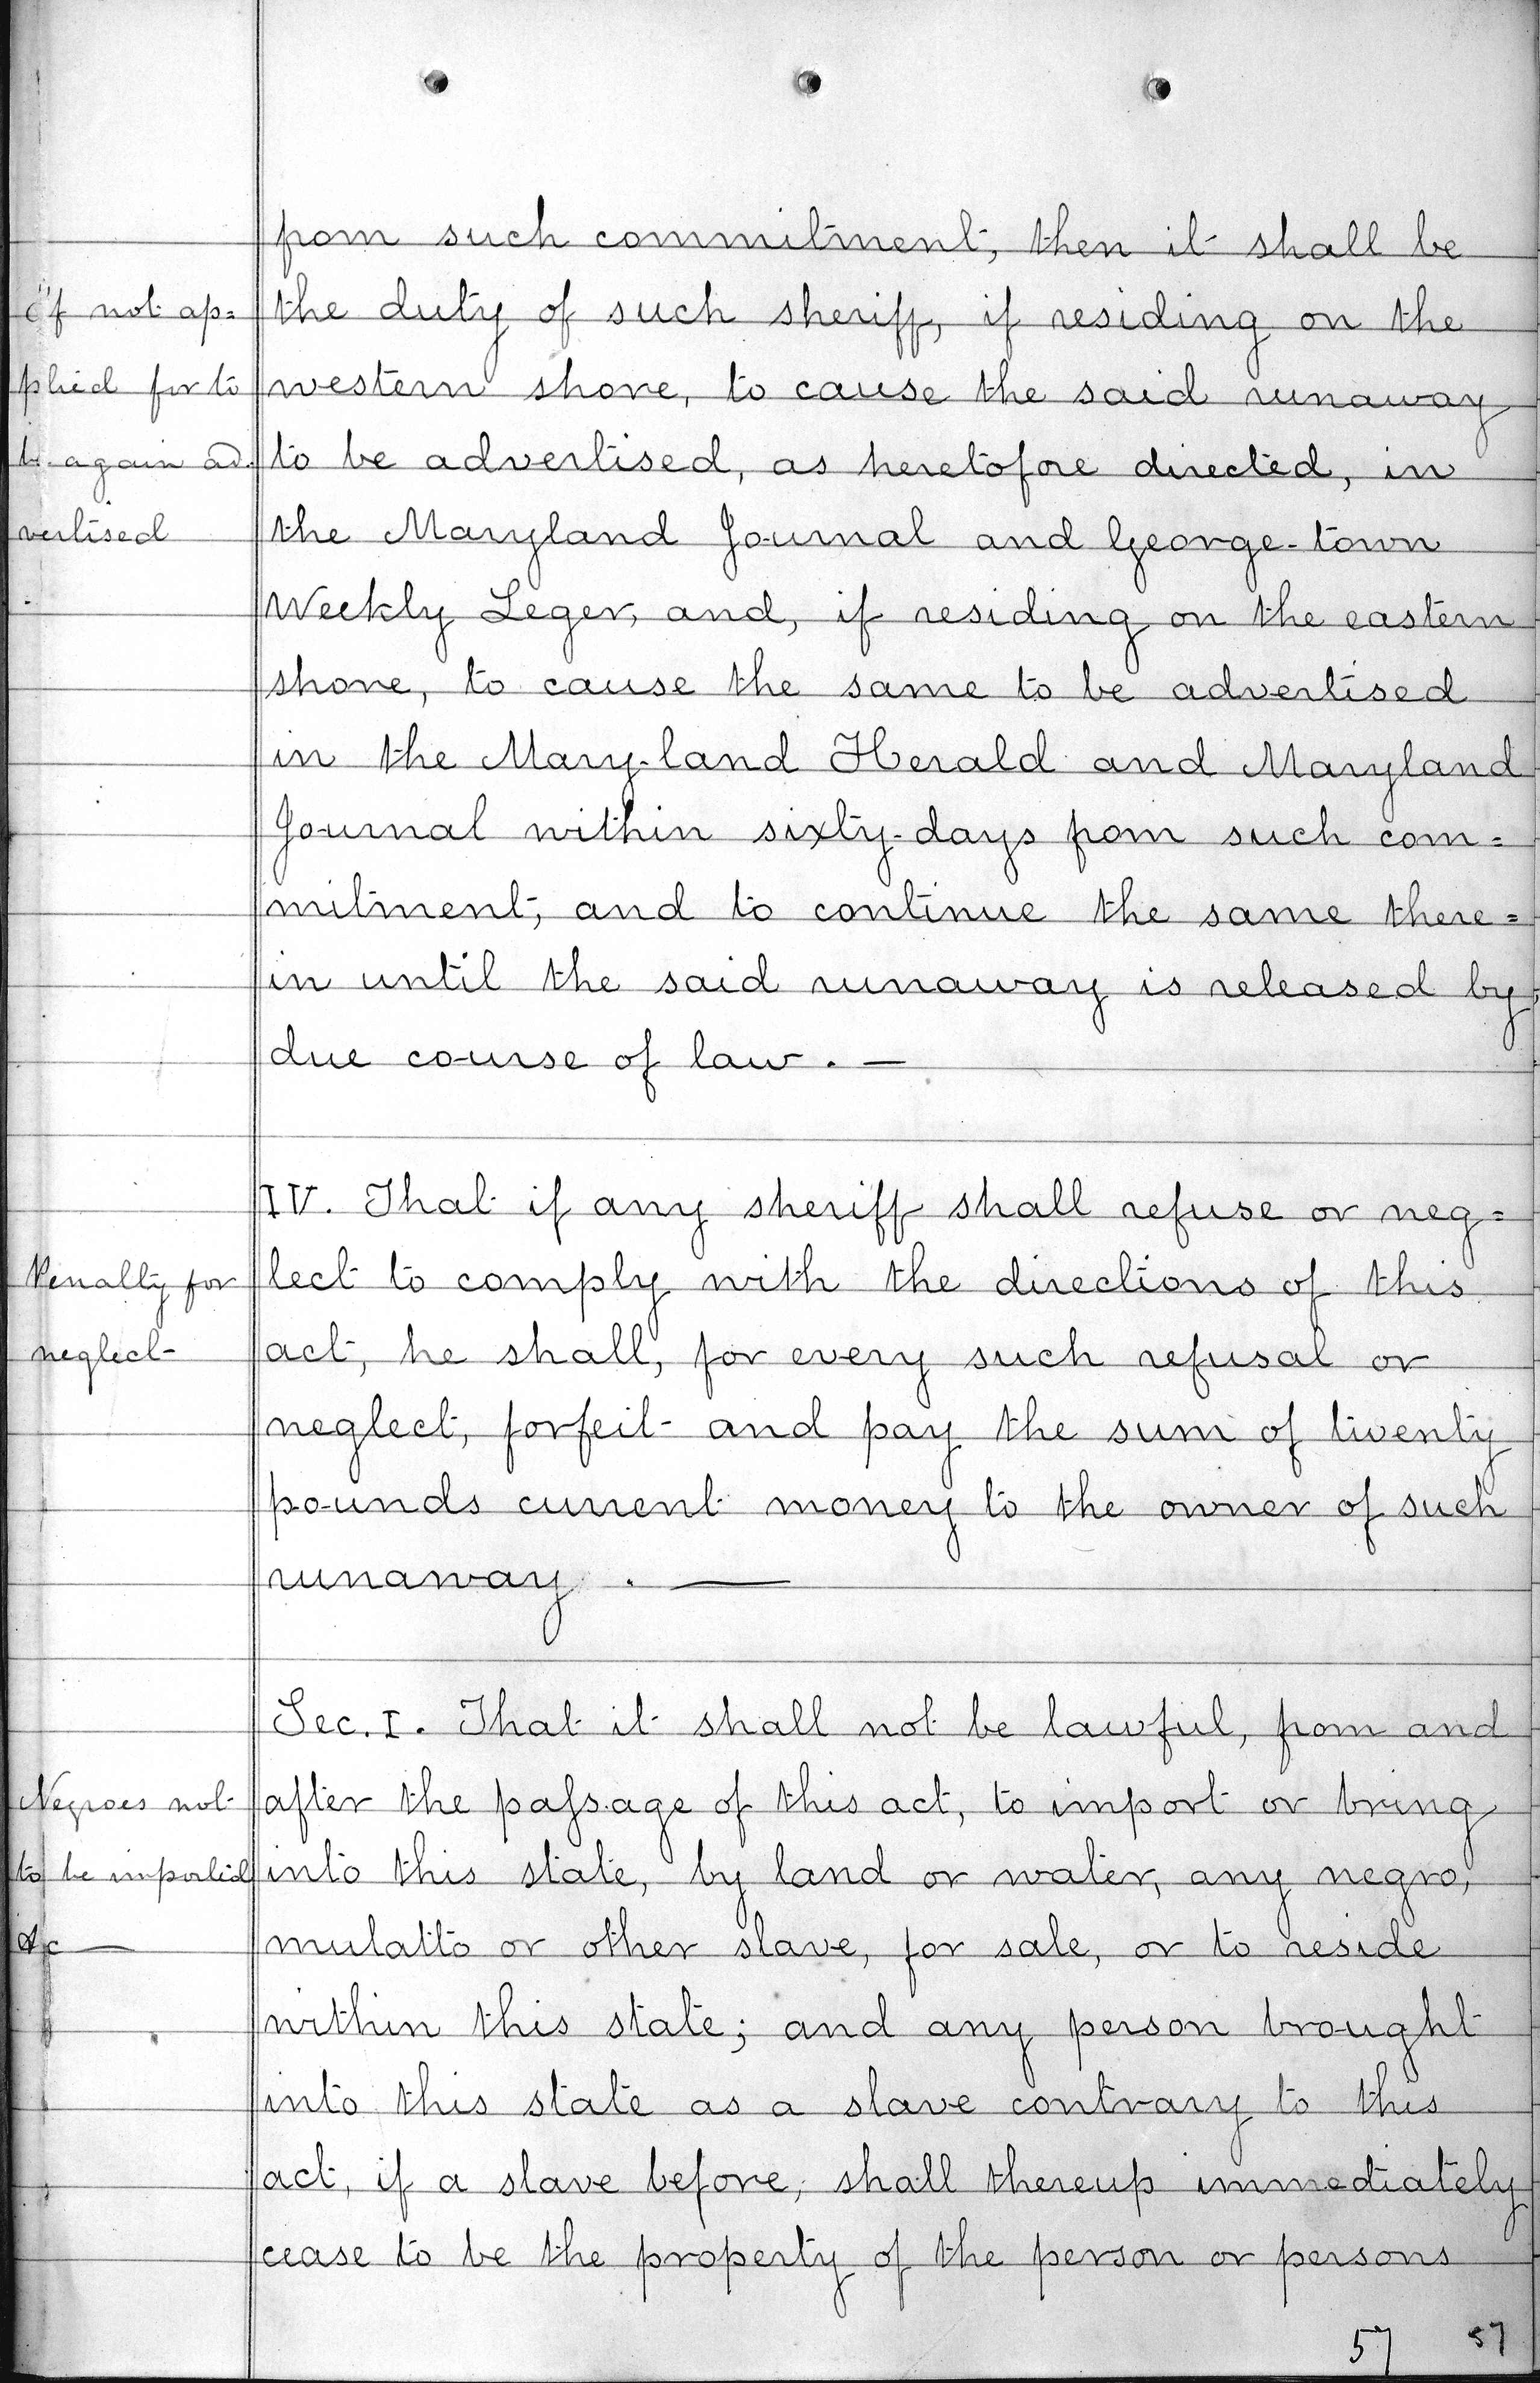 from such commitment, then it shall be
if not ap=
the duty of such sheriff, if residing on the
plied for to
western shore, to cause the said runaway
be again ad-
to be advertised, as heretofore directed, in
vertised
the Maryland Journal and George-town
Weekly Leger, and, if residing on the eastern
shore, to cause the same to be advertised
in the Mary-land Herald and Maryland
Journal within sixty-days from such com=
mitment, and to continue the same there=
in until the said runaway is released by
due course of law. —
IV. That if any sheriff shall refuse or neg=
Penalty for
lect to comply with the directions of this
neglect
act, he shall, for every such refusal or
neglect, forfeit and pay the sum of twenty
pounds current money to the owner of such
runaway. —
Sec. I. That it shall not be lawful, from and
Negroes not
after the passage of this act, to import or bring
to be imported
into this state, by land or water, any negro,
&c —
mulatto or other slave, for sale, or to reside
within this state; and any person brought
into this state as a slave contrary to this
act, if a slave before, shall thereup immediately
cease to be the property of the person or persons
57 57